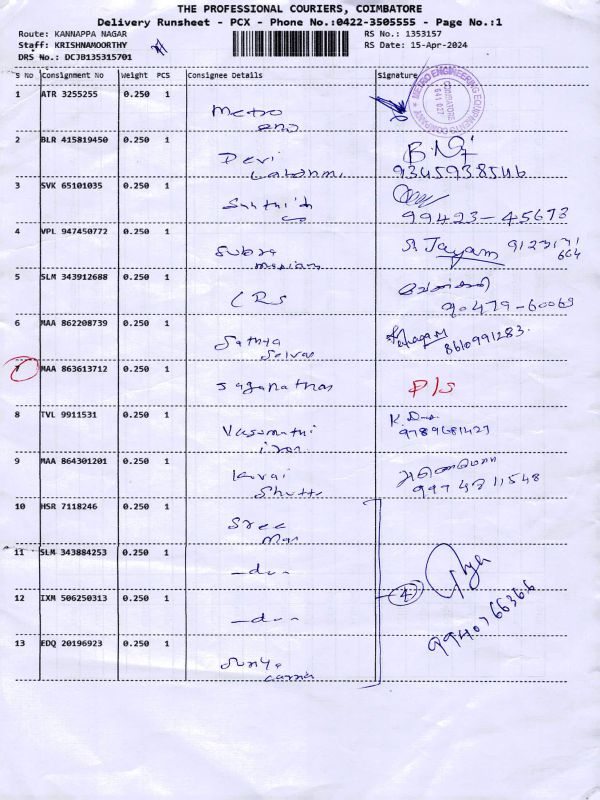 THE PROFESSIONAL COURIERS, COIMBATORE
Delivery Runsheet - PCX - Phone No.:0422-3505555 - Page No.:1
Route: KANNAPPA NAGAR RS No.: 1353157
Staff: KRISHNAMOORTHY RS Date: 15-Apr-2024
DRS No.: DCJB135315701
S No Consignment No Weight PCS Consignee Details Signature
METRO ENGINEERING EQUIPMENTS COMPANY
COIMBATORE
641 027
1 ATR 3255255 0.250 1 Metro
2 BLR 415819450 0.250 1 Devi
9345938546
3 SVK 65101035 0.250 1
99423-45673
4 VPL 947450772 0.250 1 Subra S. Jayam
5 SLM 343912688 0.250 1
90479-60069
6 MAA 862208739 0.250 1 Sathya
Selvan 8610991283
7 MAA 863613712 0.250 1 Jaganathan P/S
8 TVL 9911531 0.250 1 Vasumathi
9789681427
9 MAA 864301201 0.250 1 Kovai
10 HSR 7118246 0.250 1 Sree
11 SLM 343884253 0.250 1
12 IXM 506250313 0.250 1 4
9940766366
13 EDQ 20196923 0.250 1 Surya